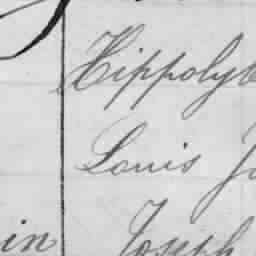 Hippolyt
Louis J
in Joseph